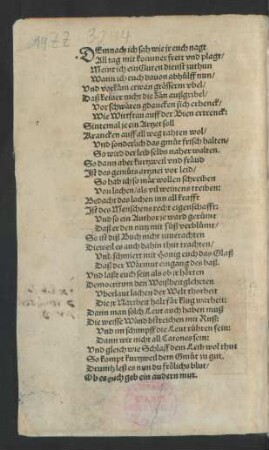 DEmnach ich sah wie jr euch nagt
All tag mit kommer frett vnd plagt/
Meint ich ein Guten dienst zuthun
Wann ich euch davon abhülff nun/
Vnd vorkäm etwan grösserm vbel/
Daß keiner nicht die Bän außgrübel/
Vor schwären gdancken sich erhenck/
Wie Wirtsran auß der Bien ertrenck:
Sintemal je ein Artzet soll
Krancken auff all weg rahten wol/
Vnd sonderlich das gmüt frisch halten/
So wird der leib selbs naher walten.
So dann aber kurtzweil vnd fräud
Ist des gemüts artznei vor leid/
So hab ich so mär wöllen schreiben
Von lachen/ als vil weinens treiben:
Bedacht des lachen inn all krafft
Ist des Menschens recht eigenschafft:
Vnd so ein Author je ward gerümt
Daß er den nutz mit süß verblümt/
So ist diß Buch nicht zuverachten
Dieweil es auch dahin thut trachten/
Vnd schmiert mit Honig euch das Glaß
Daß der Wärmut eingang den baß.
Vnd laßt euch sein als ob jr hörten
Democritum den Weißbergelehrten
Vberlaut lachen der Welt thorheit
Die jr Narrheit hält für klug warheit:
Dann man solch Leut auch haben muß
Die weisse Wänd bstreichen mit Ruß:
Vnd im schimpff die Leut rühren fein:
Dann wir nicht all Catones sein:
Vnd gleich wie Schlaff dem Leib wol thut
So kompt kurtzweil dem Gmüt zu gut.
Drumb leßt es nun du frölichs blut/
Ob es euch geb ein andern mut.